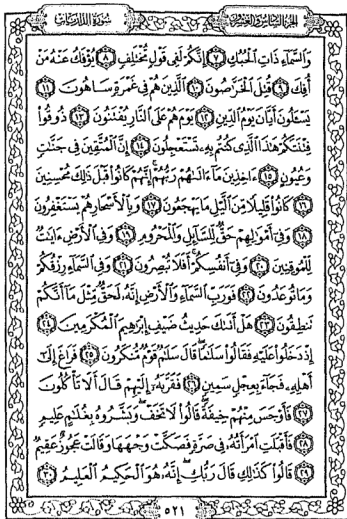 الجزء السادس والعشرون سورة الذاريات
وَالسَّمَاءِ ذَاتِ الْحُبُكِ ٧ إِنَّكُمْ لَفِي قَوْلٍ مُخْتَلِفٍ ٨ يُؤْفَكُ عَنْهُ مَنْ
أُفِكَ ٩ قُتِلَ الْخَرَّاصُونَ ١٠ الَّذِينَ هُمْ فِي غَمْرَةٍ سَاهُونَ ١١
يَسْـَٔلُونَ أَيَّانَ يَوْمُ الدِّينِ ١٢ يَوْمَ هُمْ عَلَى النَّارِ يُفْتَنُونَ ١٣ ذُوقُوا
فِتْنَتَكُمْ هَـٰذَا الَّذِي كُنْتُمْ بِهِ تَسْتَعْجِلُونَ ١٤ إِنَّ الْمُتَّقِينَ فِي جَنَّـٰتٍ
وَعُيُونٍ ١٥ ءَاخِذِينَ مَا ءَاتَىٰهُمْ رَبُّهُمْ إِنَّهُمْ كَانُوا قَبْلَ ذَٰلِكَ مُحْسِنِينَ
١٦ كَانُوا قَلِيلًا مِّنَ الَّيْلِ مَا يَهْجَعُونَ ١٧ وَبِالْأَسْحَارِ هُمْ يَسْتَغْفِرُونَ
١٨ وَفِي أَمْوَٰلِهِمْ حَقٌّ لِّلسَّائِلِ وَالْمَحْرُومِ ١٩ وَفِي الْأَرْضِ ءَايَـٰتٌ
لِّلْمُوقِنِينَ ٢٠ وَفِي أَنْفُسِكُمْ أَفَلَا تُبْصِرُونَ ٢١ وَفِي السَّمَاءِ رِزْقُكُمْ
وَمَا تُوعَدُونَ ٢٢ فَوَرَبِّ السَّمَاءِ وَالْأَرْضِ إِنَّهُ لَحَقٌّ مِّثْلَ مَا أَنَّكُمْ
تَنْطِقُونَ ٢٣ هَلْ أَتَىٰكَ حَدِيثُ ضَيْفِ إِبْرَٰهِيمَ الْمُكْرَمِينَ ٢٤
إِذْ دَخَلُوا عَلَيْهِ فَقَالُوا سَلَـٰمًا قَالَ سَلَـٰمٌ قَوْمٌ مُّنْكَرُونَ ٢٥ فَرَاغَ إِلَىٰ
أَهْلِهِ فَجَاءَ بِعِجْلٍ سَمِينٍ ٢٦ فَقَرَّبَهُ إِلَيْهِمْ قَالَ أَلَا تَأْكُلُونَ
٢٧ فَأَوْجَسَ مِنْهُمْ خِيفَةً قَالُوا لَا تَخَفْ وَبَشَّرُوهُ بِغُلَـٰمٍ عَلِيمٍ
٢٨ فَأَقْبَلَتِ امْرَأَتُهُ فِي صَرَّةٍ فَصَكَّتْ وَجْهَهَا وَقَالَتْ عَجُوزٌ عَقِيمٌ
٢٩ قَالُوا كَذَٰلِكِ قَالَ رَبُّكِ إِنَّهُ هُوَ الْحَكِيمُ الْعَلِيمُ ٣٠
٥٢١